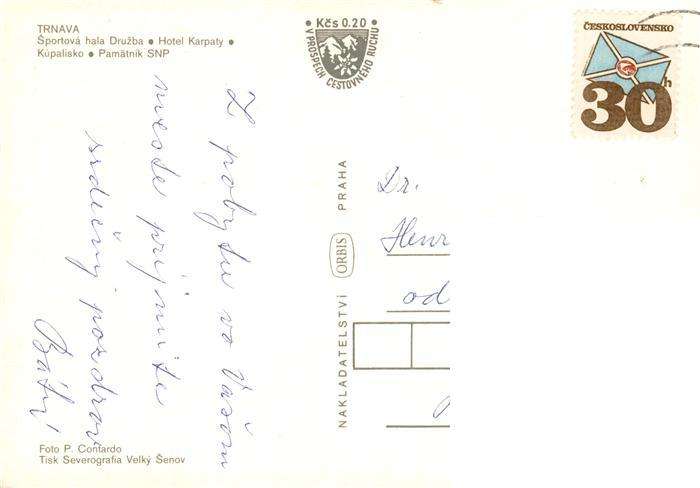 TRNAVA
Športová hala Družba ● Hotel Karpaty ●
Kúpalisko ● Pamätník SNP
Kčs 0.20
V PROSPECH CESTOVNÉHO RUCHU
ČESKOSLOVENSKO
30h
Z pobytu vo Vašom
meste prijmite
srdečný pozdrav
NAKLADATELSTVÍ ORBIS PRAHA
Dr.
Henr
od
Foto P. Contardo
Tisk Severografia Velký Šenov